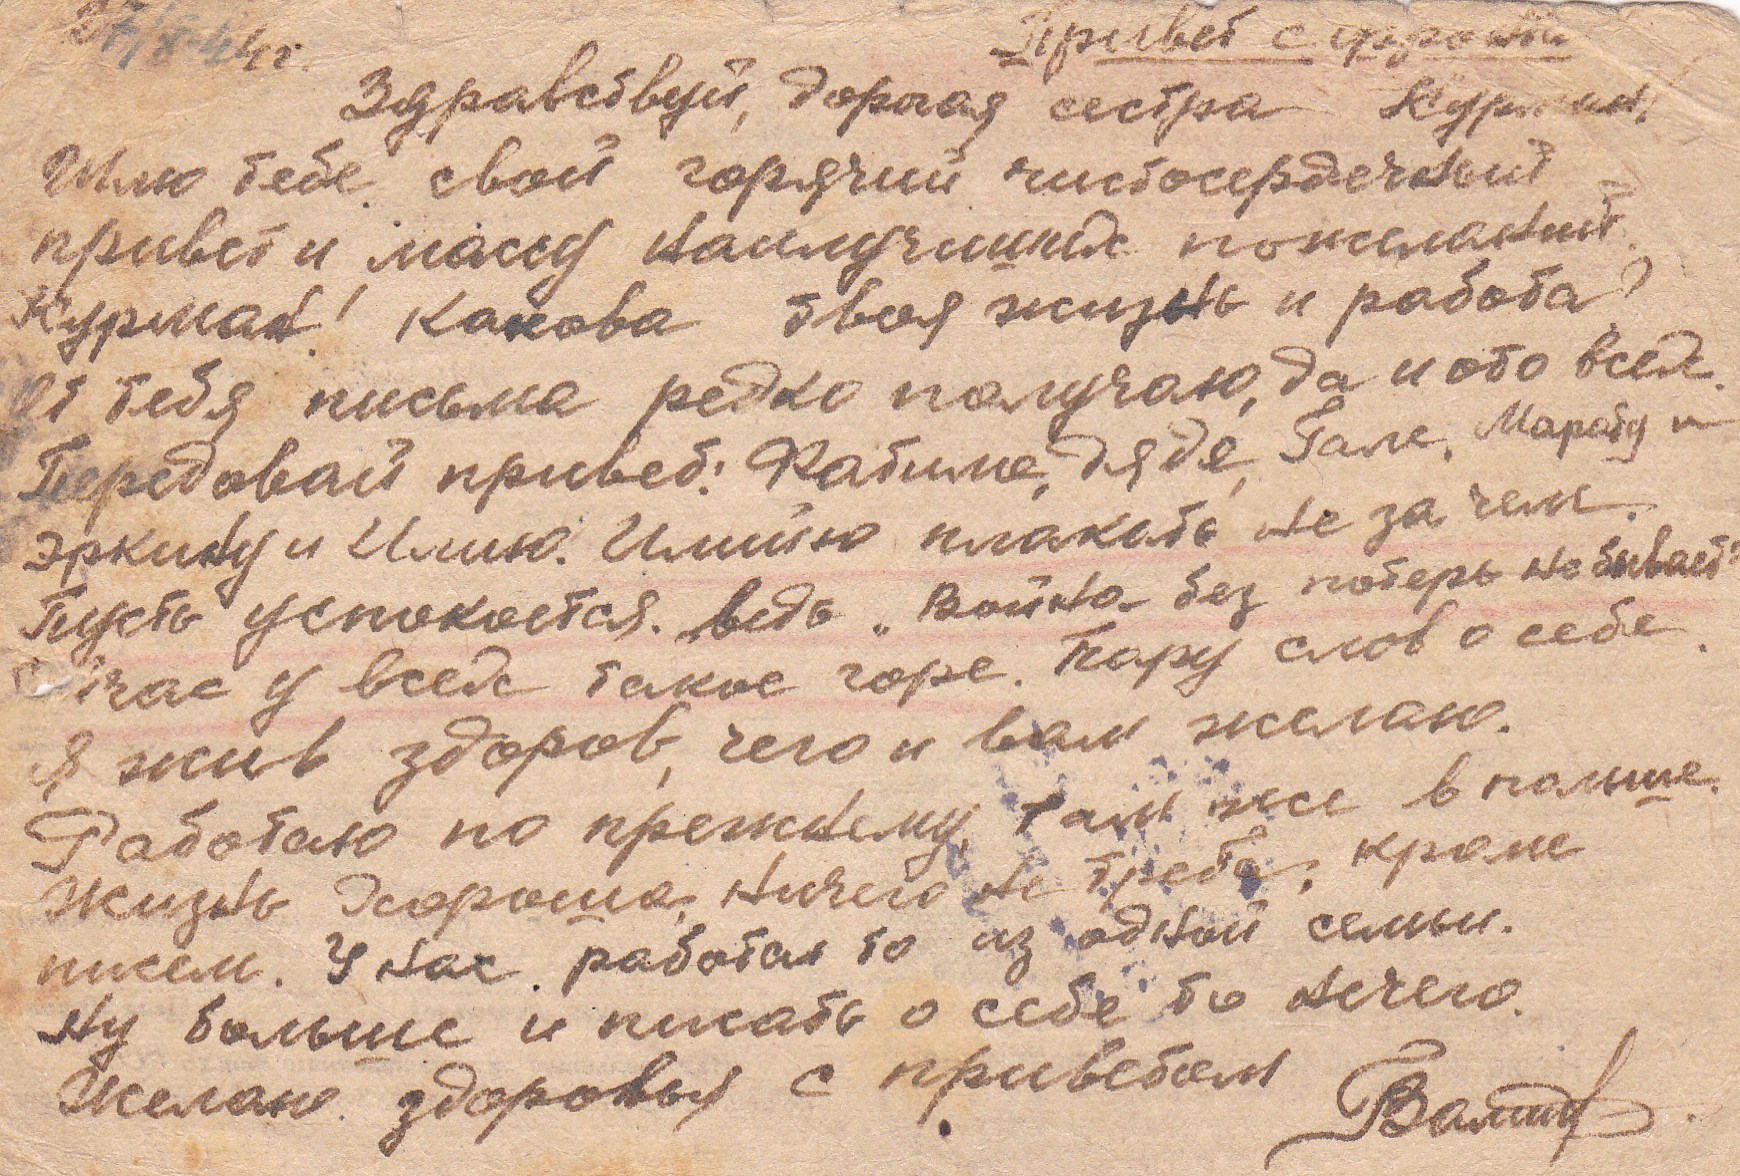 Привет с фронта
44г.
Здравствуй, дорогая сестра Курман!
Шлю тебе свой горячий чистосердечный
привет и массу наилучших пожеланий.
Курман! Какова твоя жизнь и работа?
От тебя письма редко получаю, да и ото всех.
Передовай привет: Катиме, дяде, Гале, Марату и
Эркину и Илию. Илийю плакать не за чем.
Пусть успокоется. ведь „Война без потерь не бывает"
Сейчас у всех такое горе. Пару слов о себе.
Я жив здоров, чего и вам желаю.
Работаю по прежнему, там же в польше.
Жизнь хороша, ничего не треба, кроме
писем. У нас работа то из одной семьи.
Ну больше и писать о себе то нечего.
Желаю здоровья с приветом